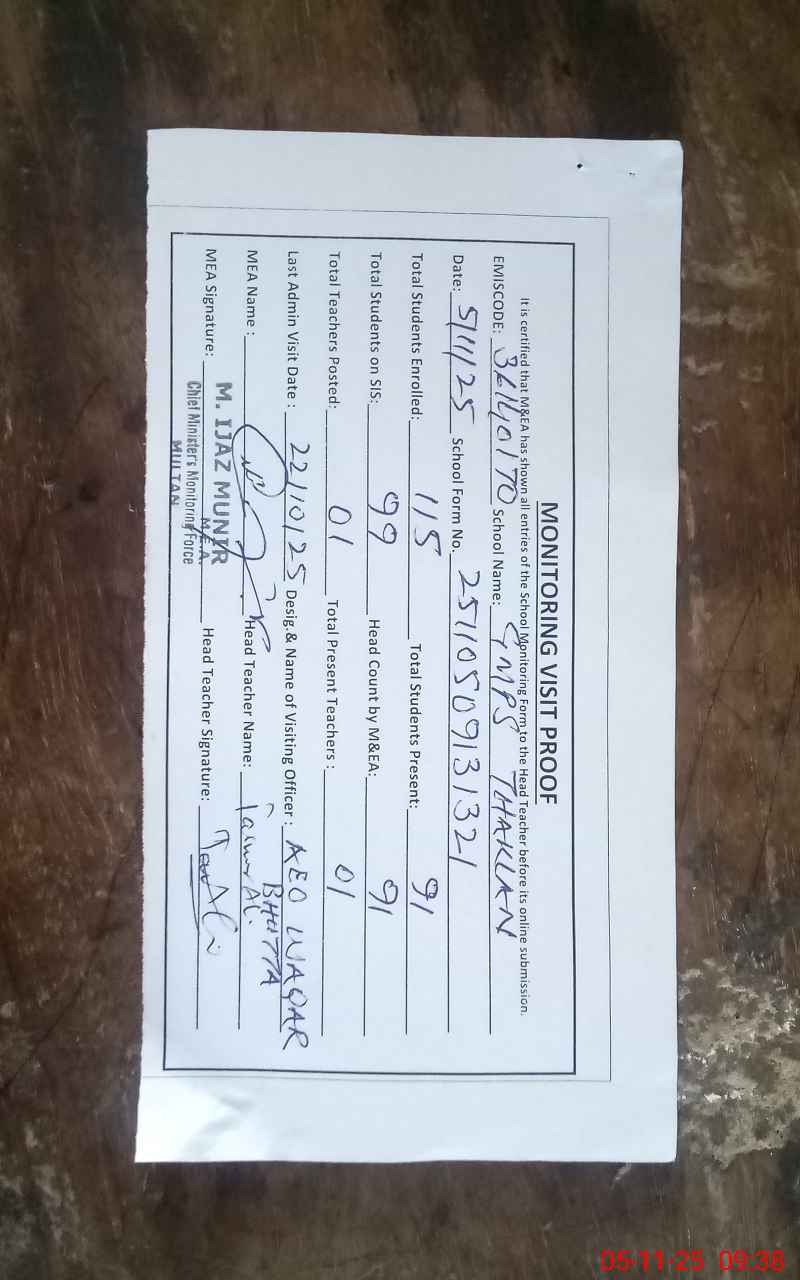 MONITORING VISIT PROOF
It is certified that M&EA has shown all entries of the School Monitoring Form to the Head Teacher before its online submission.
EMISCODE: 36140170 School Name: GMPS THAKLAN
Date: 5/11/25 School Form No. 25110509131321
Total Students Enrolled: 115 Total Students Present: 91
Total Students on SIS: 99 Head Count by M&EA: 91
Total Teachers Posted: 01 Total Present Teachers : 01
Last Admin Visit Date : 22/10/25 Desig.& Name of Visiting Officer : AEO WAQAR
BHUTTA
MEA Name : Head Teacher Name:
M. IJAZ MUNIR
MEA Signature: M.E.A. Head Teacher Signature:
Chief Minister's Monitoring Force
MULTAN
05-11-25 09:38